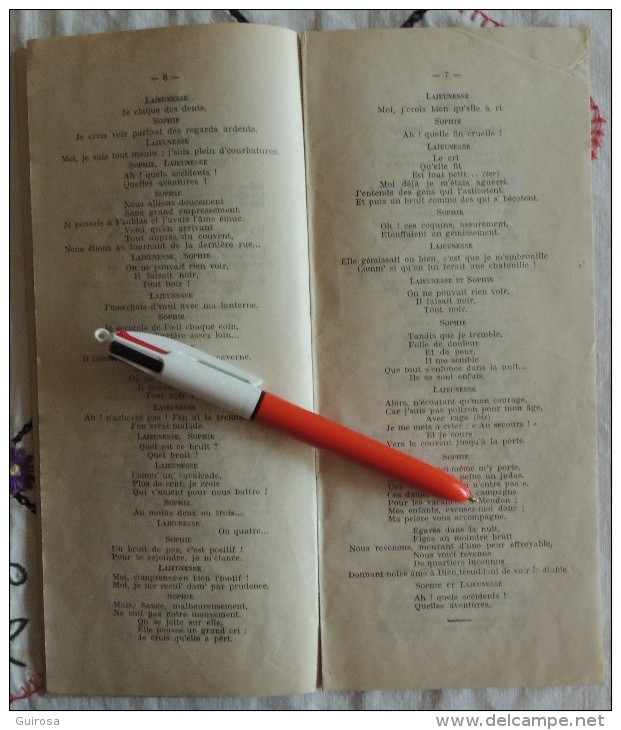 — 6 —
LAJEUNESSE
Je claque des dents.
SOPHIE
Je crois voir partout des regards ardents.
LAJEUNESSE
Moi, je suis tout moulu ; j'suis plein d'courbatures.
SOPHIE, LAJEUNESSE
Ah ! quels accidents !
Quelles aventures !
SOPHIE
Nous allions doucement
Sans grand empressement.
Je pensais à Faublas et j'avais l'âme émue.
Voici qu'en arrivant
Tout auprès du couvent,
Nous étions au tournant de la dernière rue...
LAJEUNESSE, SOPHIE
On ne pouvait rien voir,
Il faisait noir,
Tout noir !
LAJEUNESSE
J'marchais d'vant avec ma lanterne.
SOPHIE
Je scrutais de l'œil chaque coin,
arrière assez loin...
Il fais caverne.
On ne
Il fai
Tout noir
LAJEUNESSE
Ah ! n'achevez pas ! J'en ai la trem
J'en serai malade.
LAJEUNESSE, SOPHIE
Quel est ce bruit ?
Quel bruit !
LAJEUNESSE
Comm' un' cavalcade,
Plus de cent, je crois
Qui v'naient pour nous battre !
SOPHIE
Au moins deux ou trois...
LAJEUNESSE
Ou quatre...
SOPHIE
Un bruit de pas, c'est positif !
Pour le rejoindre, je m'élance.
LAJEUNESSE
Moi, comprenez-en bien l'motif !
Moi, je me recul' dam' par prudence,
SOPHIE
Mais, Sauce, malheureusement,
Ne suit pas notre mouvement.
On se jette sur elle,
Elle pousse un grand cri :
Je crois qu'elle a péri.
— 7 —
LAJEUNESSE
Moi, j'crois bien qu'elle a ri.
SOPHIE
Ah ! quelle fin cruelle !
LAJEUNESSE
Le cri
Qu'elle fit
Est tout petit... (ter)
Moi déjà je m'étais aguerri.
J'entends des gens qui l'asticotent.
Et puis un bruit comme des qui s' bécotent.
SOPHIE
Oh ! ces coquins, assurément,
Etouffaient un gémissement.
LAJEUNESSE
Elle gémissait ou bien, c'est que je m'embrouille
Comm' si qu'on lui ferait une chatouille !
LAJEUNESSE ET SOPHIE
On ne pouvait rien voir,
Il faisait noir,
Tout noir.
SOPHIE
Tandis que je tremble,
Folle de douleur
Et de peur,
Il me semble
Que tout s'enfonce dans la nuit...
Ils se sont enfuis.
LAJEUNESSE
Alors, n'écoutant qu'mon courage,
Car j'suis pas poltron pour mon âge,
Avec rage (bis)
Je me mets à crier : « Au secours ! »
Et je cours
Vers le couvent jusqu'à la porte.
SOPHIE
moi-même m'y porte,
Avec peine un judas.
Une n'entre pas ».
Ces dames campagne
Pour les vacances Meudon ;
Mes enfants, excusez-moi donc ;
Ma prière vous accompagne.
Egarés dans la nuit,
Figés au moindre bruit
Nous revenons, mourant d'une peur effroyable,
Nous voici revenus
De quartiers inconnus
Donnant notre âme à Dieu, tremblant de voir le diable
SOPHIE ET LAJEUNESSE
Ah ! quels accidents !
Quelles aventures.
Guirosa
www.delcampe.net